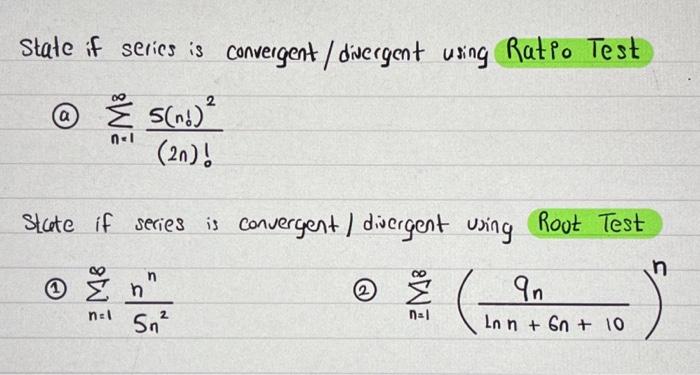 State if series is convergent / divergent using Ratio Test
ⓐ ∞ Σ n=1 5(n!)² / (2n)!
State if series is convergent / divergent using Root Test
① ∞ Σ n=1 nⁿ / 5n² ② ∞ Σ n=1 ( 9n / Ln n + 6n + 10 )ⁿ